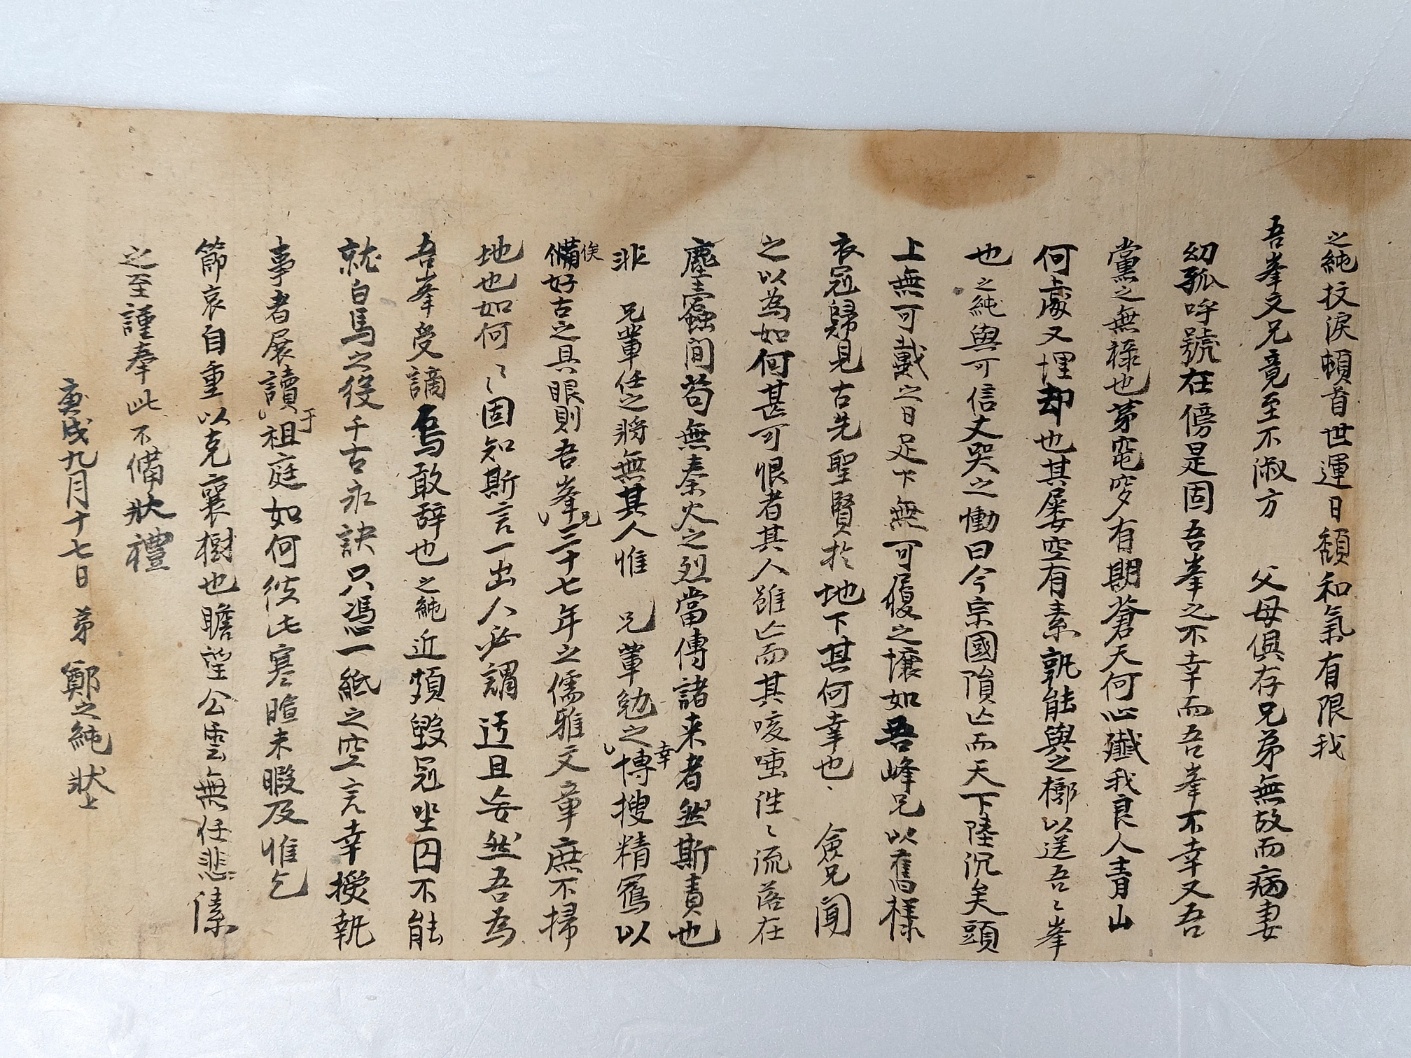 之純抆淚頓首世運日頹和氣有限我
吾峯文兄竟至不淑方 父母俱存兄弟無故而病妻
幼孤呼號在傍是固吾峯之不幸而吾峯不幸又吾
黨之無祿也第窀穸有期蒼天何心殲我良人青山
何處又埋却也其屢空有素孰能與之槨以送吾〻峯
也之純與可信丈哭之慟曰今宗國隕亡而天下陸沉矣頭
上無可戴之日足下無可履之壤如吾峰兄以舊樣
衣冠歸見古先聖賢於地下其何幸也、 僉兄聞
之以為如何甚可恨者其人雖亡而其咳唾往〻流落在
塵蠹蝕間苟無秦火之烈當傳諸来者然斯責也
非 兄輩任之將無其人惟 兄輩勉之幸博搜精寫以
俟備好古之具眼則吾峯兄三十七年之儒雅文章庶不掃
地也如何〻固知斯言一出人必謂迂且妄然吾為
吾峯受謫烏敢辭也之純近頻毀冠坐囚不能
就白馬之役千古永訣只憑一紙之空言幸擬執
事者展讀于祖庭如何彼此寒暄未暇及惟乞
節哀自重以克襄樹也瞻望公雲無任悲溸
之至謹奉此不備狀禮
庚戌九月十七日 弟 鄭之純 狀上